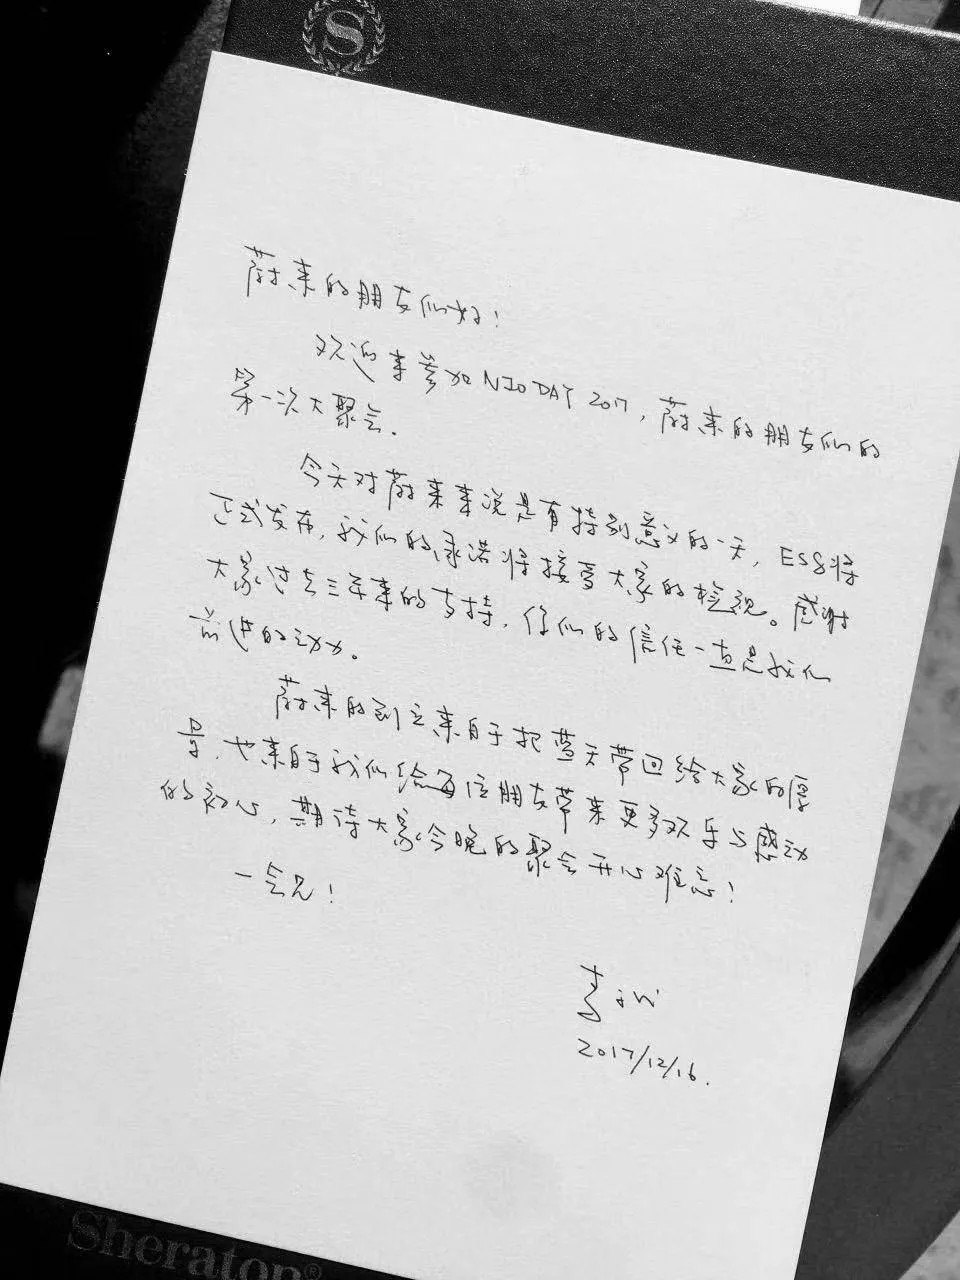 S
蔚来的朋友们好！
欢迎来参加NIO DAY 2017，蔚来的朋友们的
第一次大聚会。
今天对蔚来来说是有特别意义的一天，ES8将
正式发布，我们的承诺将接受大家的检视。感谢
大家过去三年来的支持，你们的信任一直是我们
前进的动力。
蔚来的创立来自于把蓝天带回给大家的愿
景，也来自于我们给每位朋友带来更多欢乐与感动
的初心，期待大家今晚的聚会开心难忘！
一会见！
李斌
2017/12/16.
Sheraton®